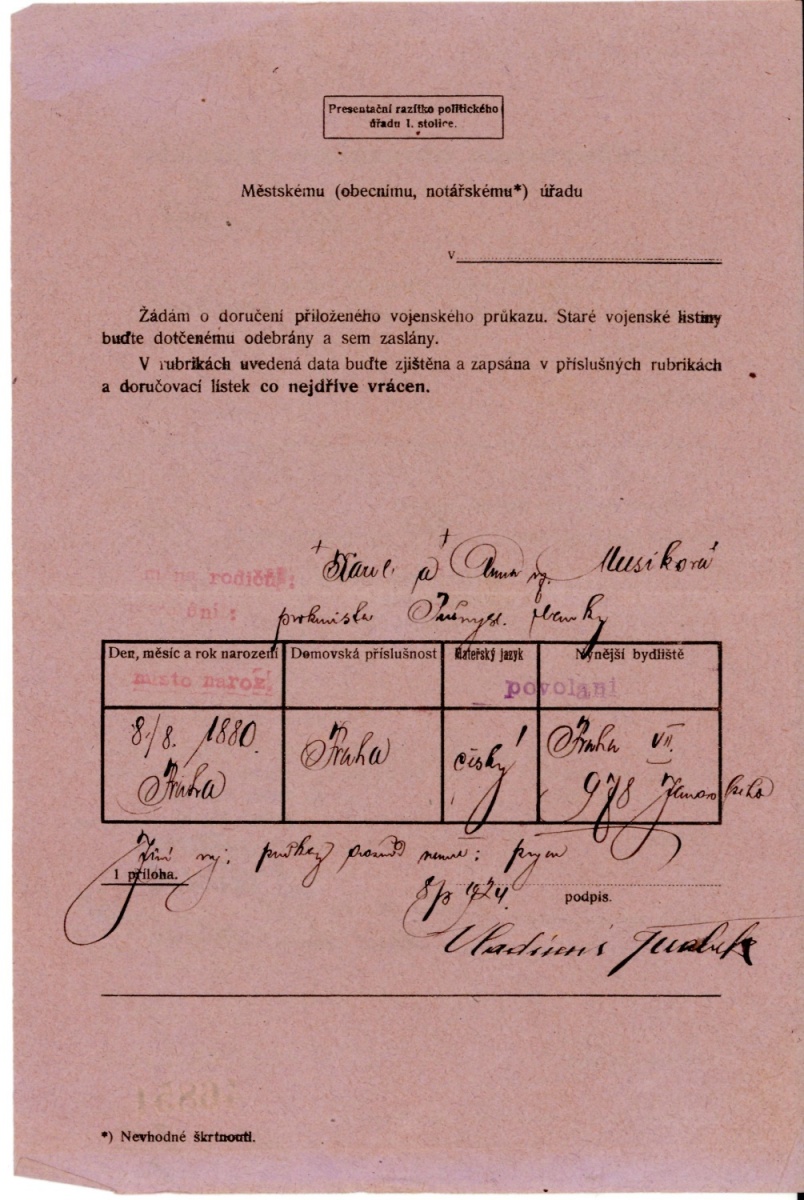 Presentační razítko politického
úřadu I. stolice.
Městskému (obecnímu, notářskému*) úřadu
v
Žádám o doručení přiloženého vojenského průkazu. Staré vojenské listiny
buďte dotčenému odebrány a sem zaslány.
V rubrikách uvedená data buďte zjištěna a zapsána v příslušných rubrikách
a doručovací lístek co nejdříve vrácen.
Karel a Anna Musíková
rodičů:
prokurista Průmysl. banky
Den, měsíc a rok narození Domovská příslušnost Mateřský jazyk Nynější bydliště
místo naroz. povolání
8./8. 1880. Praha český Praha VII.
Praha 978
1 příloha.
1924. podpis.
Vladimír
*) Nevhodné škrtnouti.